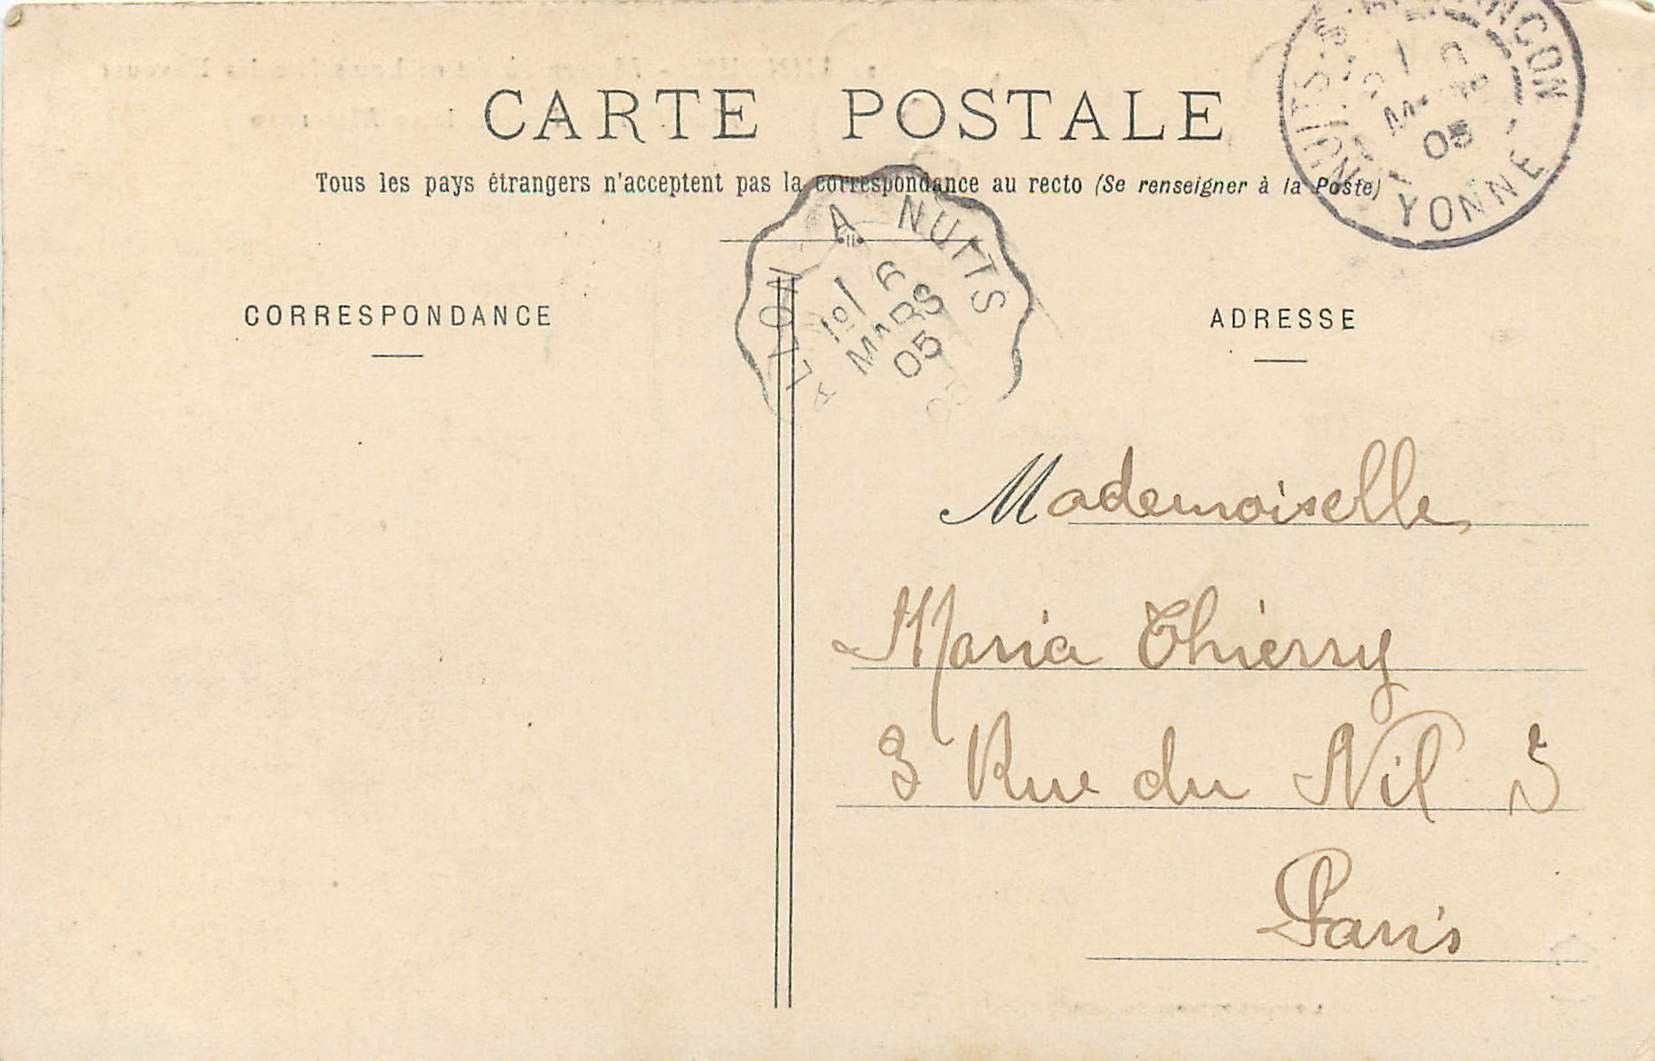 CARTE POSTALE
Tous les pays étrangers n'acceptent pas la correspondance au recto (Se renseigner à la Poste)
NUITS-S-ARMANÇON
MARS
05
YONNE
AVALLON A NUITS
1º/ 6
MARS
05
CORRESPONDANCE
ADRESSE
Mademoiselle
Maria Thierry
3 Rue du Nil 3
Paris